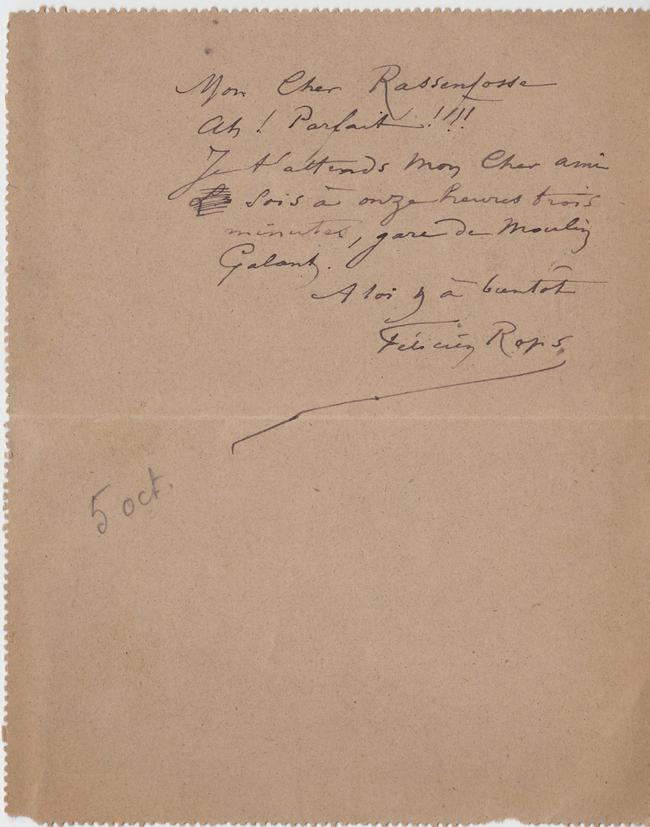 Mon Cher Rassenfosse
Ah ! Parfait !!!!
Je t'attends mon cher ami
Sois à onze heures trois
minutes, gare de Moulin
Galant.
A toi & à bientôt
Félicien Rops
5 oct.